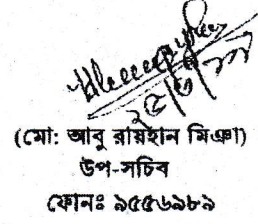 (মো: আবু রায়হান মিঞা)
উপ-সচিব
ফোনঃ ৯৫৫৬৯৮৯